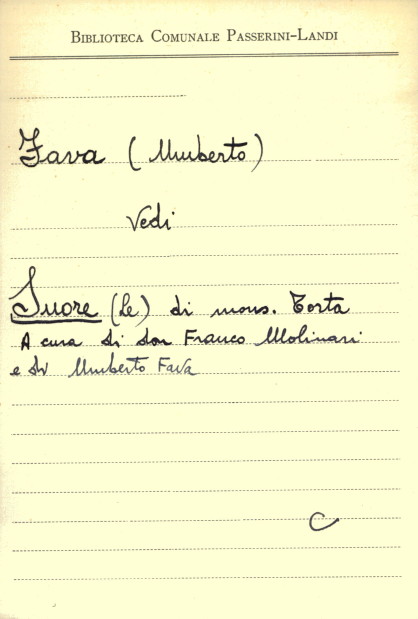 BIBLIOTECA COMUNALE PASSERINI-LANDI
Fava (Umberto)
Vedi
Suore (Le) di mons. Torta
A cura di don Franco Molinari
e di Umberto Fava
C